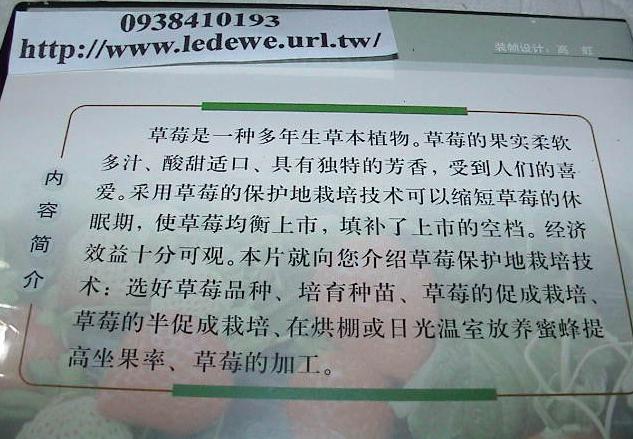 0938410193
http://www.ledewe.url.tw/
装帧设计：高 虹
内容简介
草莓是一种多年生草本植物。草莓的果实柔软
多汁、酸甜适口、具有独特的芳香，受到人们的喜
爱。采用草莓的保护地栽培技术可以缩短草莓的休
眠期，使草莓均衡上市，填补了上市的空档。经济
效益十分可观。本片就向您介绍草莓保护地栽培技
术：选好草莓品种、培育种苗、草莓的促成栽培、
草莓的半促成栽培、在烘棚或日光温室放养蜜蜂提
高坐果率、草莓的加工。